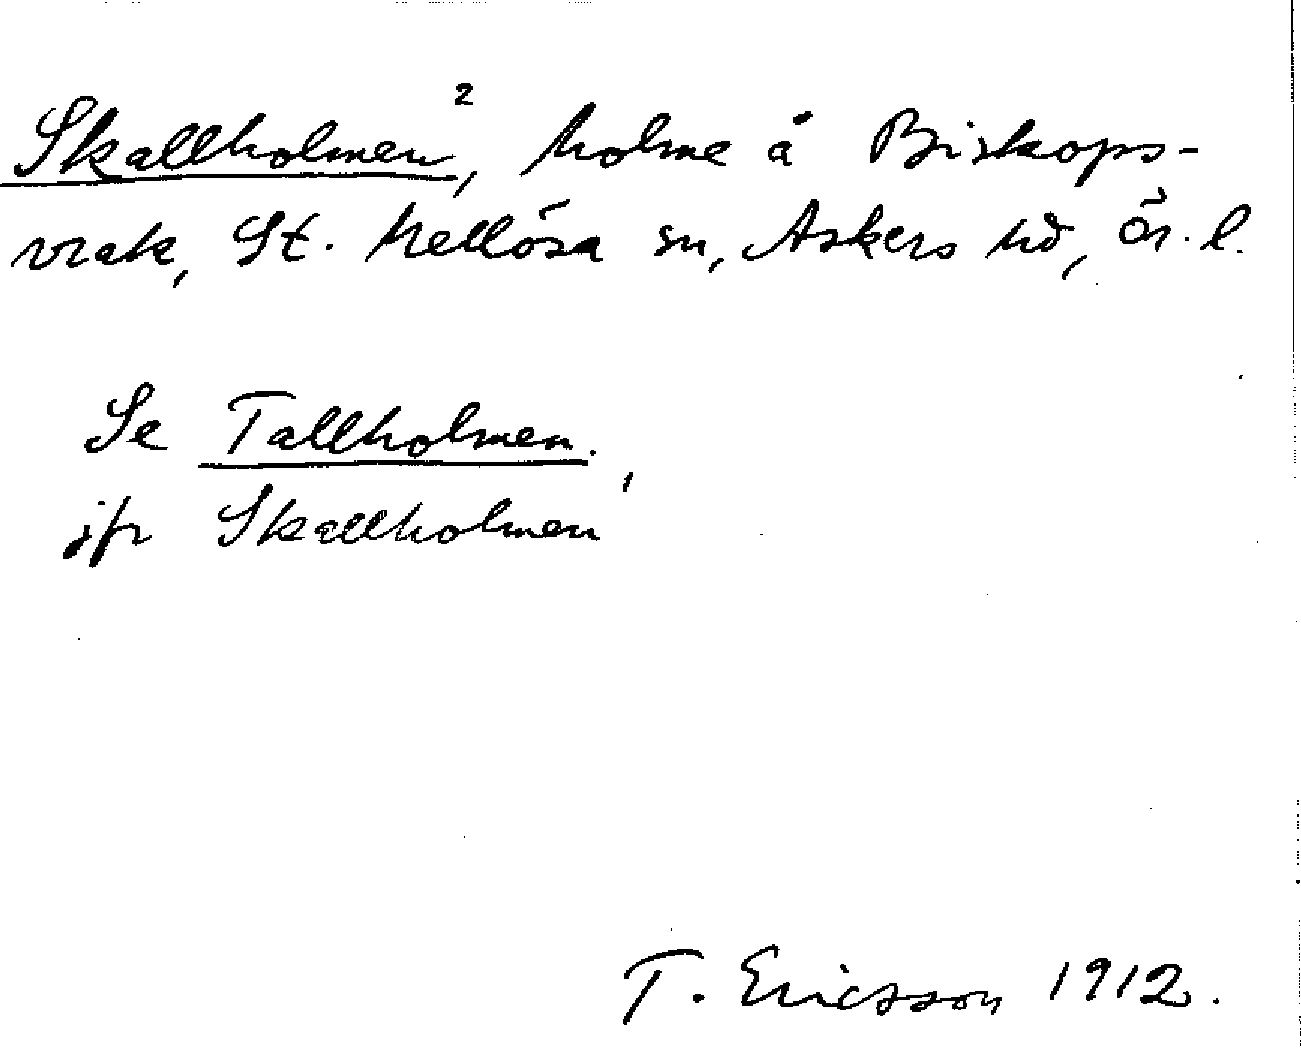 Skallholmen², holme å Biskops-
vrak, St. Mellösa sn, Askers hd, Ör. l.
Se Tallholmen.
jfr Skallholmen¹
T. Ericsson 1912.